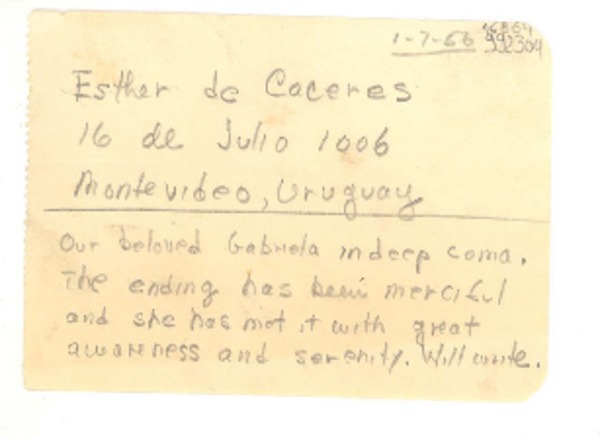 1-7-56
992304
Esther de Caceres
16 de Julio 1006
Montevideo, Uruguay
Our beloved Gabriela in deep coma.
The ending has been merciful
and she has met it with great
awareness and serenity. Will write.